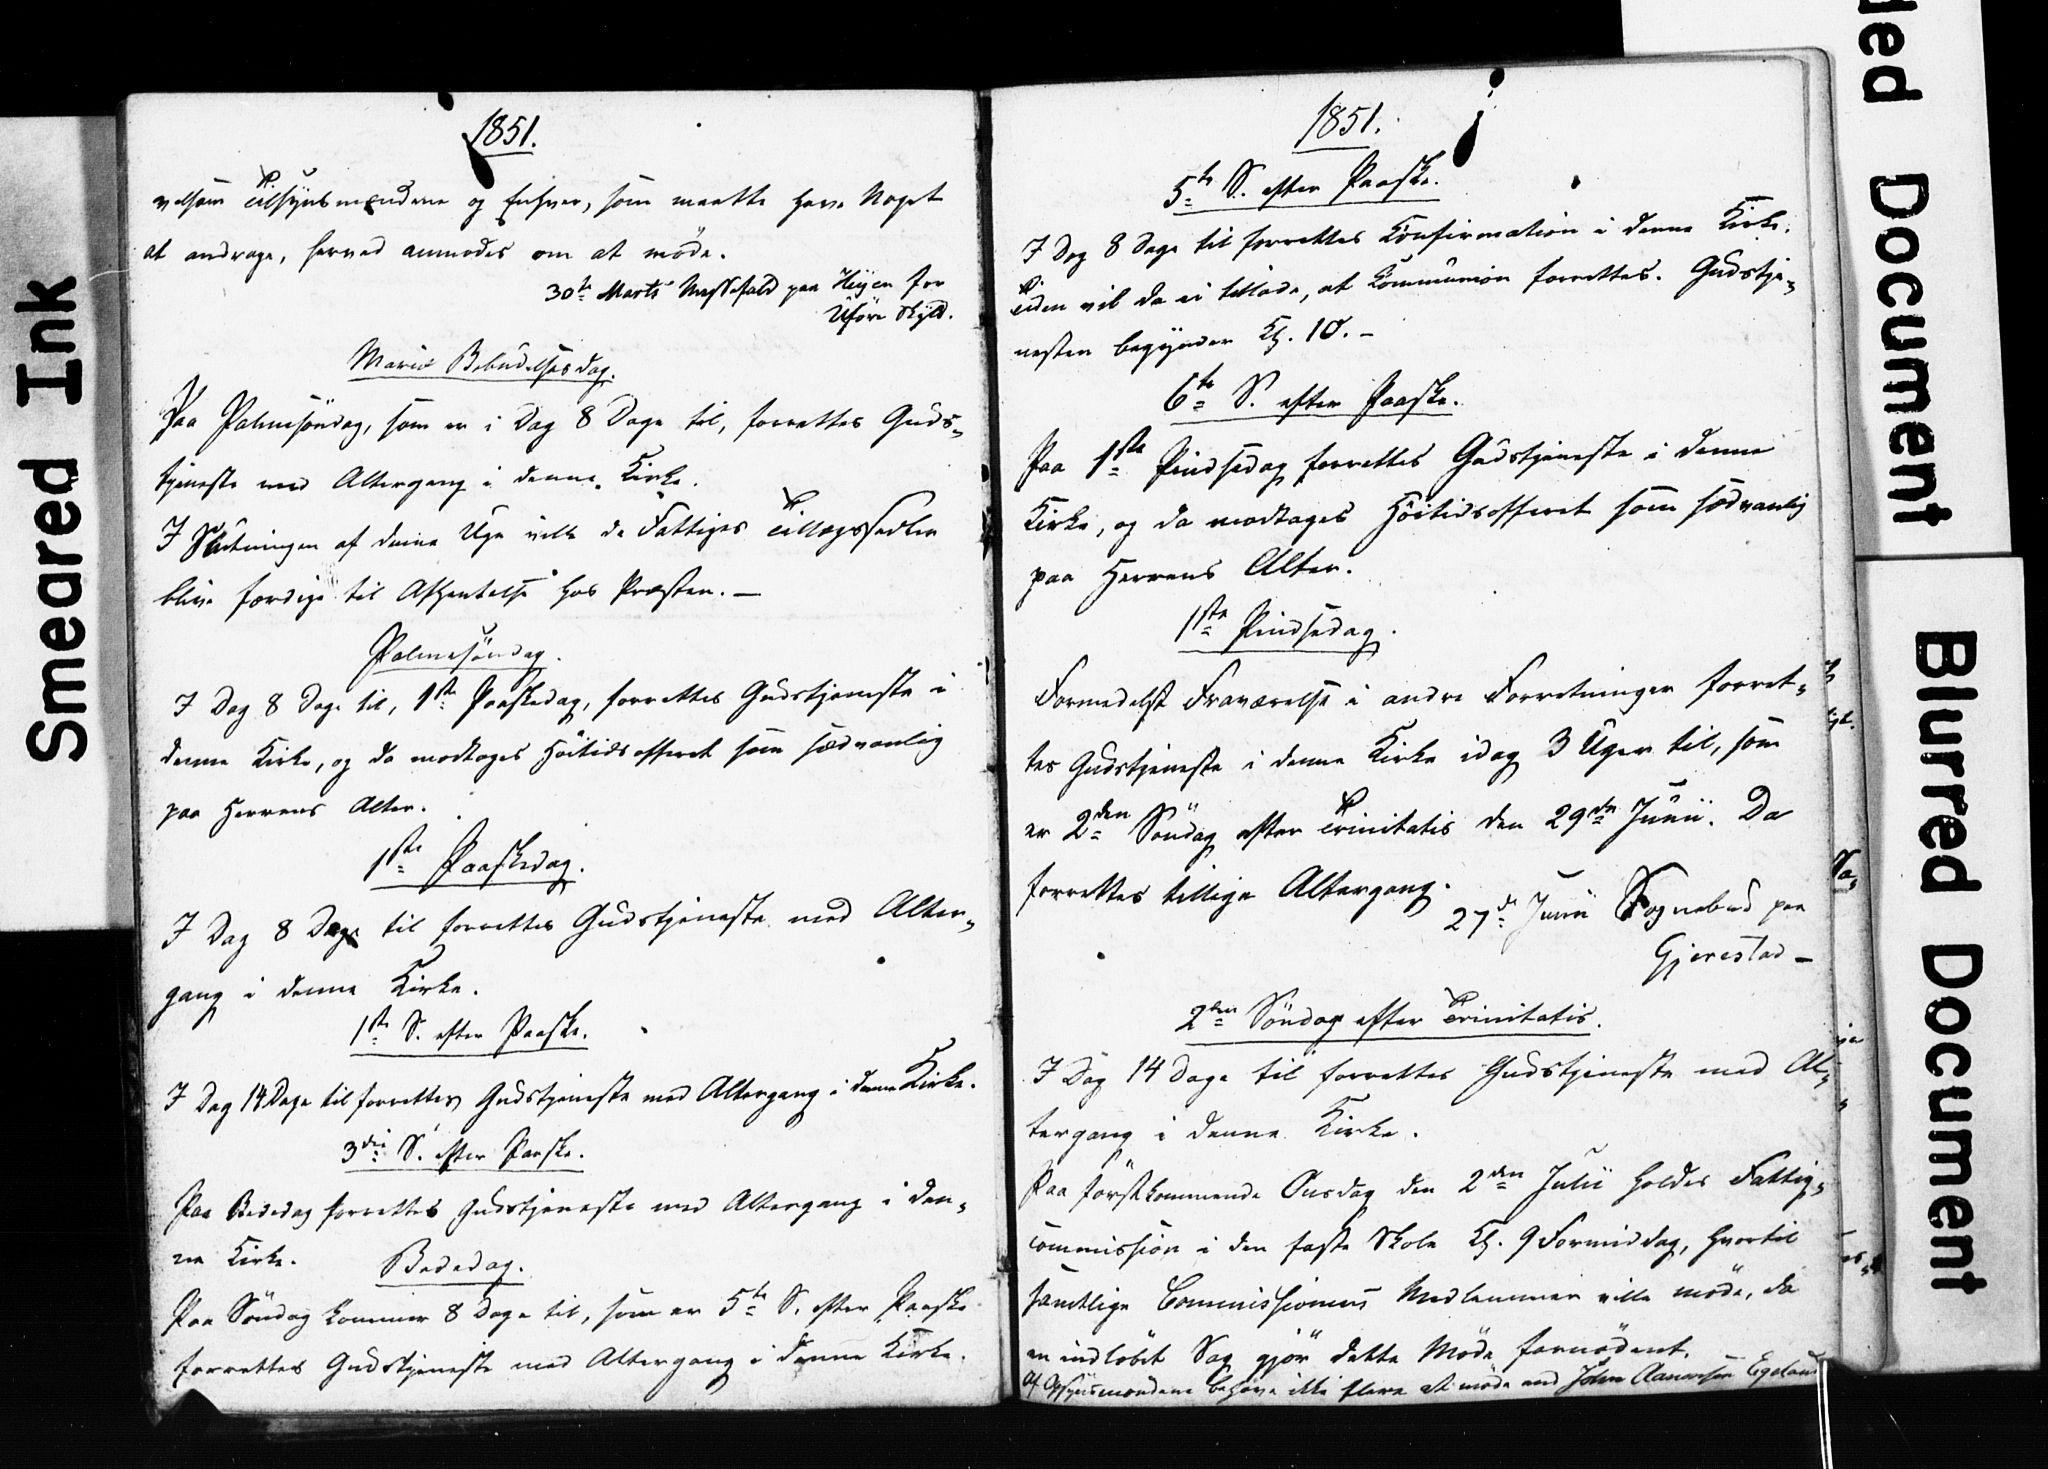 1851.
velsom Tilsynsmændene og Enhver, som maatte have Noget
at andrage, herved anmodes om at møde.
30te Marts Messefald paa Heijen for
Uføre Skyld.
Mariæ Bebudelsesdag.
Paa Palmesöndag, som er i Dag 8 Dage til, forrettes Guds-
tjeneste med Altergang i denne Kirke.
I Slutningen af denne Uge ville de Fattiges Tillægssedler
blive færdige til Afhentelse hos Præsten. —
Palmesöndag.
I Dag 8 Dage til, 1ste Paaskedag, forrettes Gudstjeneste i
denne Kirke, og da modtages Höitidsofferet som sædvanlig
paa Herrens Alter.
1ste Paaskedag.
I Dag 8 Dage til forrettes Gudstjeneste med Alter-
gang i denne Kirke.
1ste S. efter Paaske.
I Dag 14 Dage til forrettes Gudstjeneste med Altergang i denne Kirke.
3die S. efter Paaske.
Paa Bededag forrettes Gudstjeneste med Altergang i den-
ne Kirke.
Bededag.
Paa Söndag kommer 8 Dage til, som er 5te S. efter Paaske
forrettes Gudstjeneste med Altergang i denne Kirke.
1851.
5te S. efter Paaske.
I Dag 8 Dage til forrettes Confirmation i denne Kirke.
Tiden vil da ei tillade, at Communion forrettes. Gudstje-
nesten begynder Kl. 10. -
6te S. efter Paaske.
Paa 1ste Pindsedag forrettes Gudstjeneste i denne
Kirke, og da modtages Höitidsofferet som sædvanlig
paa Herrens Alter.
1ste Pindsedag.
Formedelst Fraværelse i andre Forretninger forret-
tes Gudstjeneste i denne Kirke idag 3 Uger til, som
er 2den Söndag efter Trinitatis den 29de Junii. Da
forrettes tillige Altergang.
27de Junii Sognebud paa
Gjerestad —
2den Söndag efter Trinitatis.
I Dag 14 Dage til forrettes Gudstjeneste med Al-
tergang i denne Kirke.
Paa förstkommende Onsdag den 2den Julii holdes Fattig-
commission i den faste Skole Kl. 9 Formiddag, hvortil
samtlige Commissionens Medlemmer ville möde, da
en indlöbet Sag gjör dette Möde fornödent.
Af Opsynsmændene behöve ikke flere at möde end John Aanonsen Egeland
Smeared Ink
Document
Blurred Document